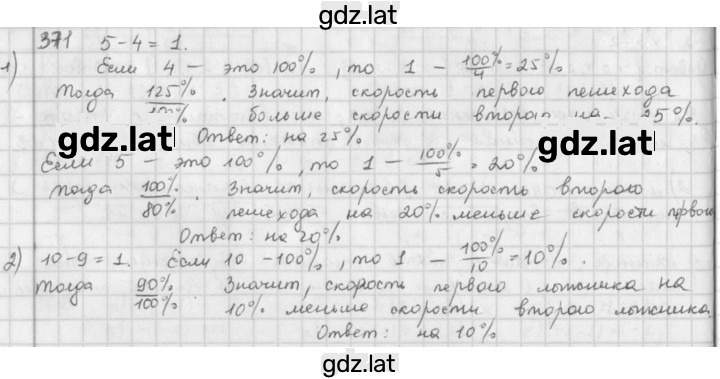 gdz.lat
371 5 - 4 = 1.
1) Если 4 — это 100%, то 1 — 100%/4 = 25%
Тогда 125%/100%. Значит, скорость первого пешехода
больше скорости второго на 25%.
gdz.lat gdz.lat
Ответ: на 25%
Если 5 — это 100%, то 1 — 100%/5 = 20%
Тогда 100%/80%. Значит, скорость скорость второго
пешехода на 20% меньше скорости первого
Ответ: на 20%
2) 10 - 9 = 1. Если 10 - 100%, то 1 — 100%/10 = 10%.
Тогда 90%/100%. Значит, скорость первого лыжника на
10% меньше скорости второго лыжника
Ответ: на 10%
gdz.lat